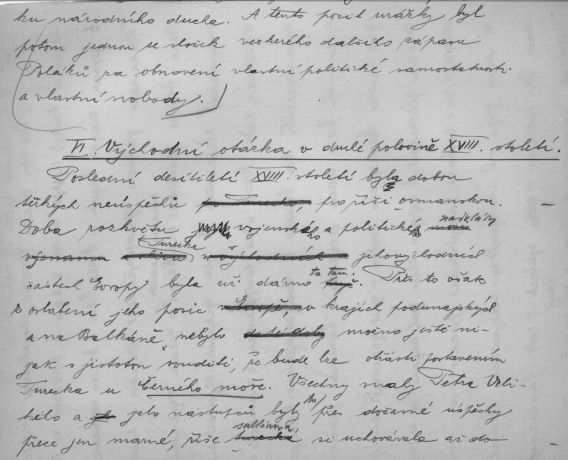 ku národního ducha. A tento pocit urážky byl
potom jednou ze složek veškerého dalšího zápasu
Poláků za obnovení vlastní politické samostatnosti
a vlastní svobody.
VI. Východní otázka v druhé polovině XVIII. století.
Poslední desítiletí XVIII. století byla dobou
těžkých neúspěchů pro říši osmanskou.
Doba rozkvětu vojenského a politické nadvlády
Turecka v jihovýchodní
části Evropy byla už dávno ta tam. Přes to však
z oslabení jeho posic v krajích podunajských
a na Balkáně nebylo možno ještě ni-
jak s jistotou souditi, že bude lze otřásti postavením
Turecka u Černého moře. Všechny snahy Petra Veli-
kého a jeho nástupců byly tu přes dočasné úspěchy
přece jen marné, říše sultánova si uchovávala až do